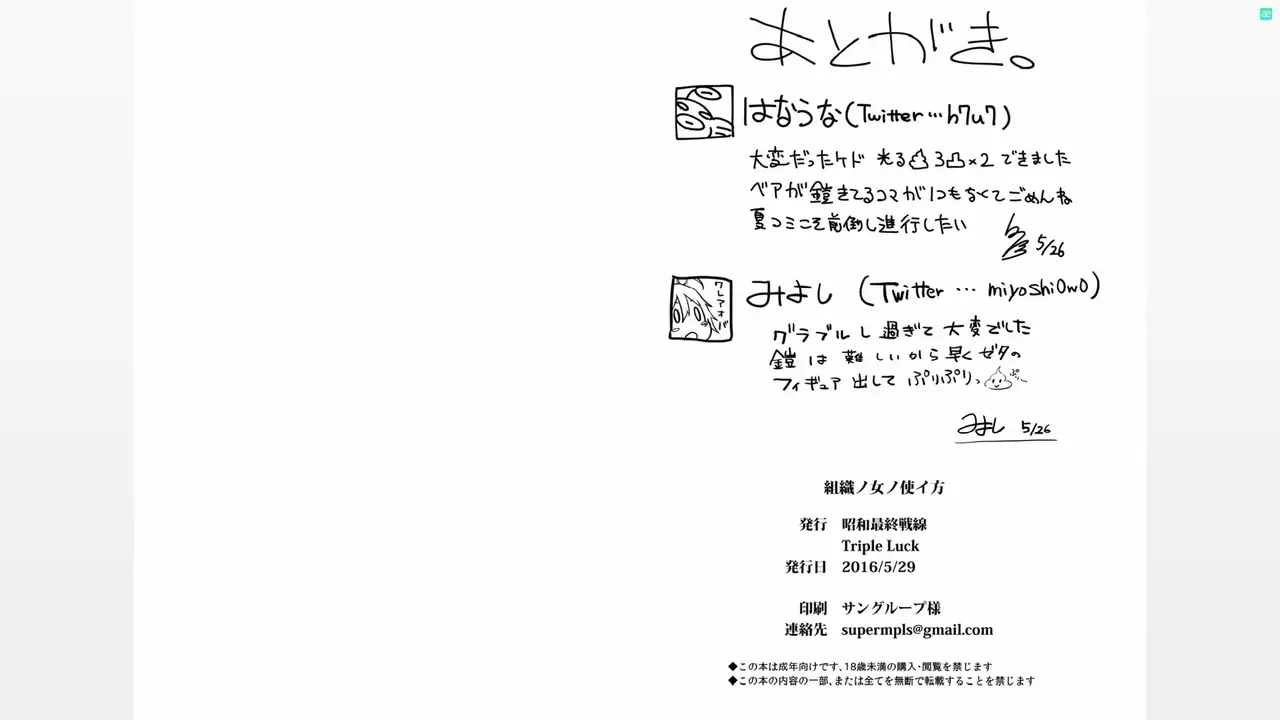 あとがき。
はなうな(Twitter…h7u7)
大変だったケド 光る凸3凸×2できました
ベアが鎧きてるコマが1つもなくてごめんね
夏コミこそ前倒し進行したい
5/26
クレアオバ
みよし (Twitter … miyoshi0w0)
グラブルし過ぎて大変でした
鎧は難しいから早くゼタの
フィギュア出して ぷりぷりっ
ぷりー
みよし 5/26
組織ノ女ノ使イ方
発行 昭和最終戦線
Triple Luck
発行日 2016/5/29
印刷 サングループ様
連絡先 supermpls@gmail.com
◆この本は成年向けです、18歳未満の購入・閲覧を禁じます
◆この本の内容の一部、または全てを無断で転載することを禁じます